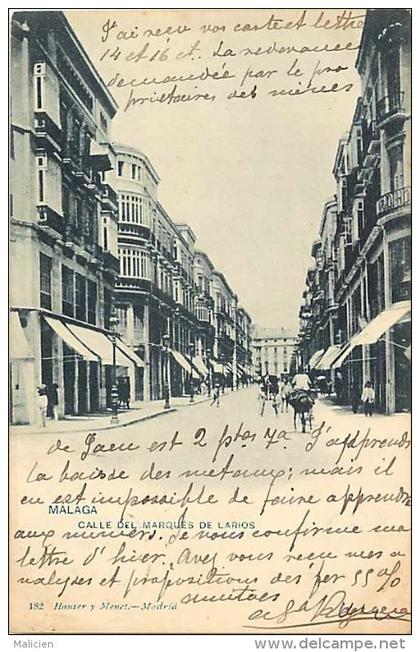 J'ai reçu vos carte et lettre
14 et 16 ct. La redevance
demandée par le pro
priétaires des mines
de Jaen est 2 ptas 7a. J'apprends
la baisse des metaux; mais il
en est impossible de faire apprendre
MALAGA
CALLE DEL MARQUÉS DE LARIOS
aux miniers. Je vous confirme ma
lettre d'hier. Avez vous reçu mes a
nalyses et propositions des per 55%
amities
182 Hauser y Menet.-Madrid
Malicien
www.delcampe.net